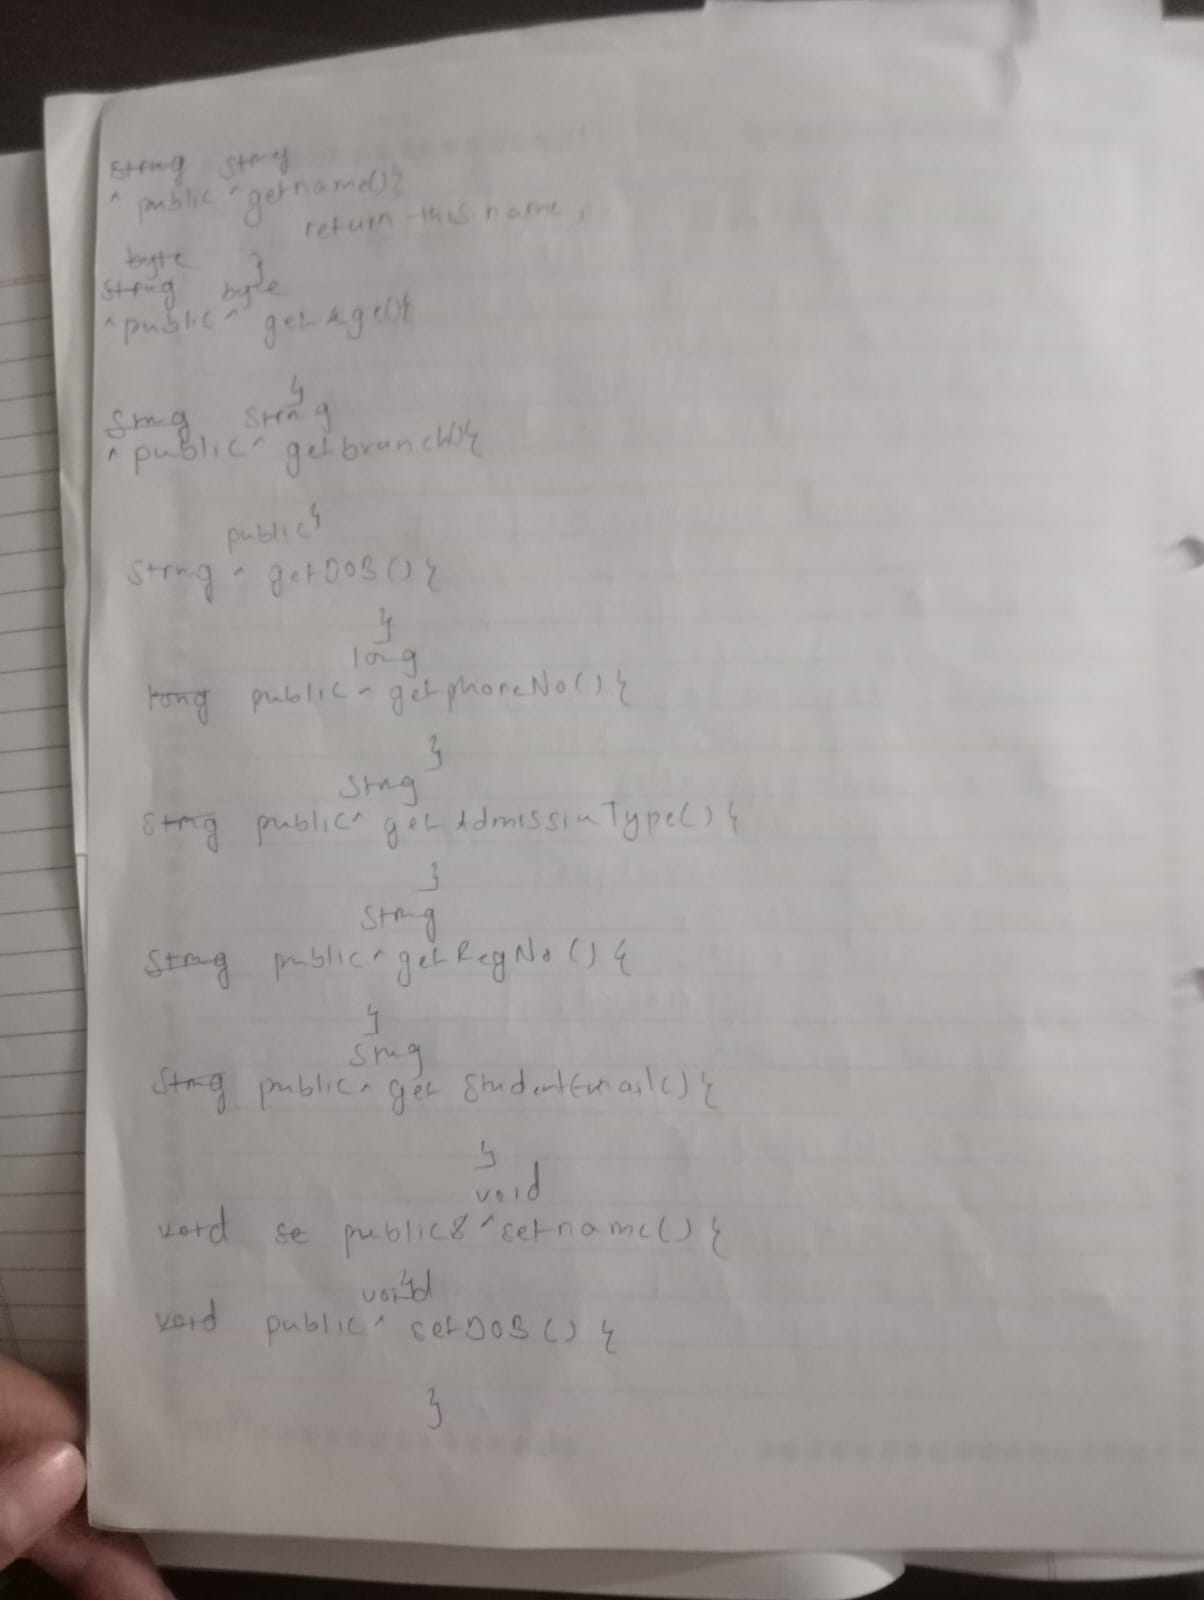 String String
^ public ^ getname(){
return this name;
byte }
String byte
^ public ^ getAge(){
}
String String
^ public ^ getbranch(){
public }
String ^ getDOB(){
}
long
long public ^ getphoneNo(){
}
String
String public ^ getAdmissinType(){
}
String
String public ^ getRegNo(){
}
String
String public ^ get StudentEmail(){
}
void
void se public ^ setname(){
void }
void public ^ setDOB(){
}